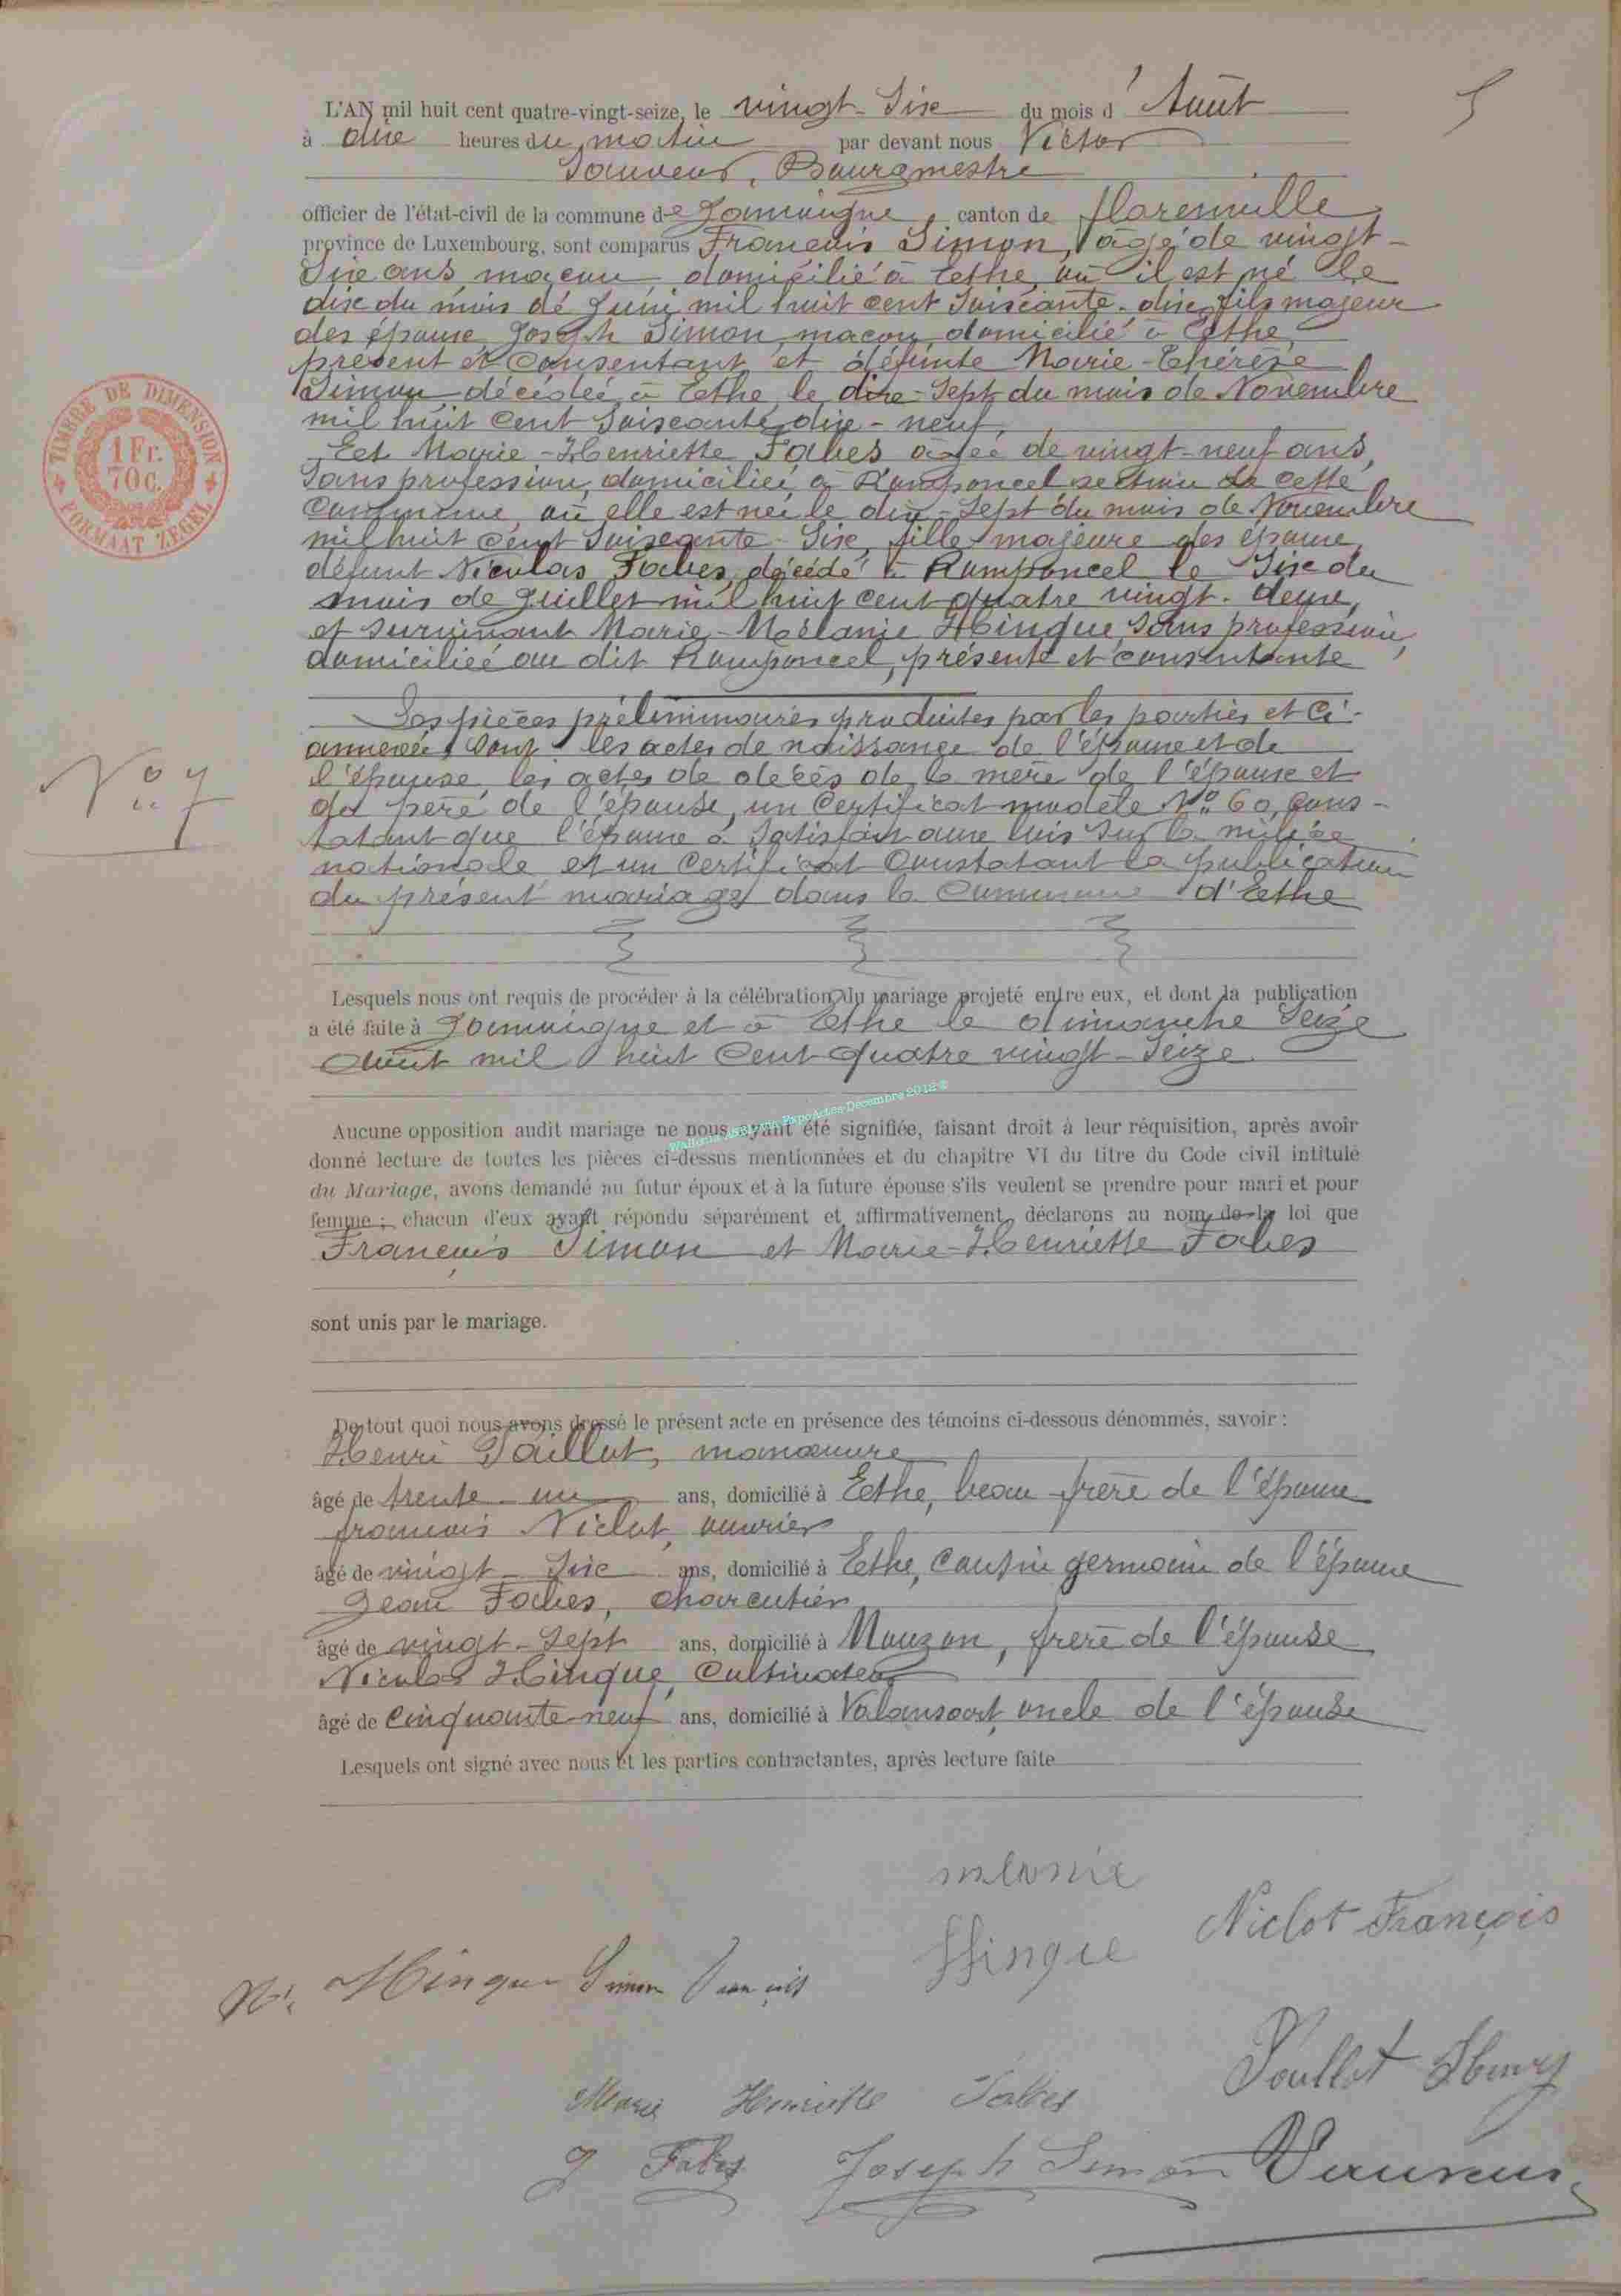 5
L'AN mil huit cent quatre-vingt-seize, le vingt-six du mois d'Août
à dix heures du matin par devant nous Victor
Sauveur, Bourgmestre
officier de l'état-civil de la commune de Jamoigne, canton de Florenville,
province de Luxembourg, sont comparus François Simon, âgé de vingt-
six ans, maçon, domicilié à Ethe, où il est né le
dix du mois de Juin mil huit cent soixante-dix, fils majeur
des époux Joseph Simon, maçon, domicilié à Ethe,
présent et consentant et défunte Marie-Thérèse
Simon, décédée à Ethe le dix-sept du mois de Novembre
mil huit cent soixante dix-neuf,
Et Marie-Henriette Fabes âgée de vingt-neuf ans,
sans profession, domiciliée à Romponcel section de cette
commune, où elle est née le dix-sept du mois de Novembre
mil huit cent soixante-six, fille majeure des époux
défunt Nicolas Fabes, décédé à Romponcel le six du
mois de Juillet mil huit cent quatre vingt-deux,
et survivant Marie-Mélanie Hinque, sans profession,
domiciliée au dit Romponcel, présente et consentante
Les pièces préliminaires produites par les parties et ci-
annexées sont les actes de naissance de l'époux et de
l'épouse, les actes de décès de la mère de l'époux et
du père de l'épouse, un certificat modèle N° 60, cons-
tatant que l'époux a satisfait aux lois sur la milice
nationale et un certificat constatant la publication
du présent mariage dans la commune d'Ethe
N° 7
TIMBRE DE DIMENSION
1 Fr.
70 c.
FORMAAT ZEGEL
Lesquels nous ont requis de procéder à la célébration du mariage projeté entre eux, et dont la publication
a été faite à Jamoigne et à Ethe le dimanche seize
août mil huit cent quatre vingt-seize.
Wallonia Asbl via ExpoActes Décembre 2012 ©
Aucune opposition audit mariage ne nous ayant été signifiée, faisant droit à leur réquisition, après avoir
donné lecture de toutes les pièces ci-dessus mentionnées et du chapitre VI du titre du Code civil intitulé
du Mariage, avons demandé au futur époux et à la future épouse s'ils veulent se prendre pour mari et pour
femme ; chacun d'eux ayant répondu séparément et affirmativement, déclarons au nom de la loi que
François Simon et Marie-Henriette Fabes
sont unis par le mariage.
De tout quoi nous avons dressé le présent acte en présence des témoins ci-dessous dénommés, savoir :
Henri Paillot, manœuvre
âgé de trente-un ans, domicilié à Ethe, beau frère de l'époux
françois Niclot, ouvrier
âgé de vingt-six ans, domicilié à Ethe, cousin germain de l'époux
Jean Fabes, charcutier
âgé de vingt-sept ans, domicilié à Mouzon, frère de l'épouse
Nicolas Hinque, cultivateur
âgé de cinquante-neuf ans, domicilié à Valansart, oncle de l'épouse
Lesquels ont signé avec nous et les parties contractantes, après lecture faite
mélanie
Hinque
Niclot François
Ns. Hinque Simon François
Henry
Marie Henriette Fabes
J Fabes Joseph Simon V Sauveur